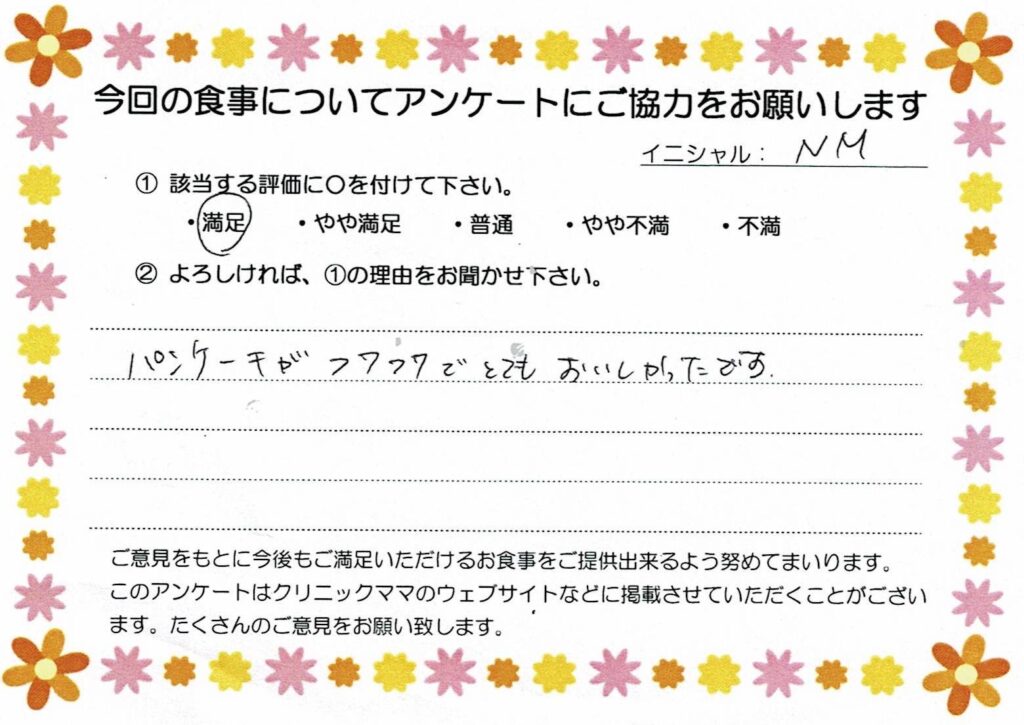 今回の食事についてアンケートにご協力をお願いします
イニシャル： NM
① 該当する評価に〇を付けて下さい。
・満足 ・やや満足 ・普通 ・やや不満 ・不満
② よろしければ、①の理由をお聞かせ下さい。
パンケーキが フワフワで とても おいしかったです.
ご意見をもとに今後もご満足いただけるお食事をご提供出来るよう努めてまいります。
このアンケートはクリニックママのウェブサイトなどに掲載させていただくことがござい
ます。たくさんのご意見をお願い致します。